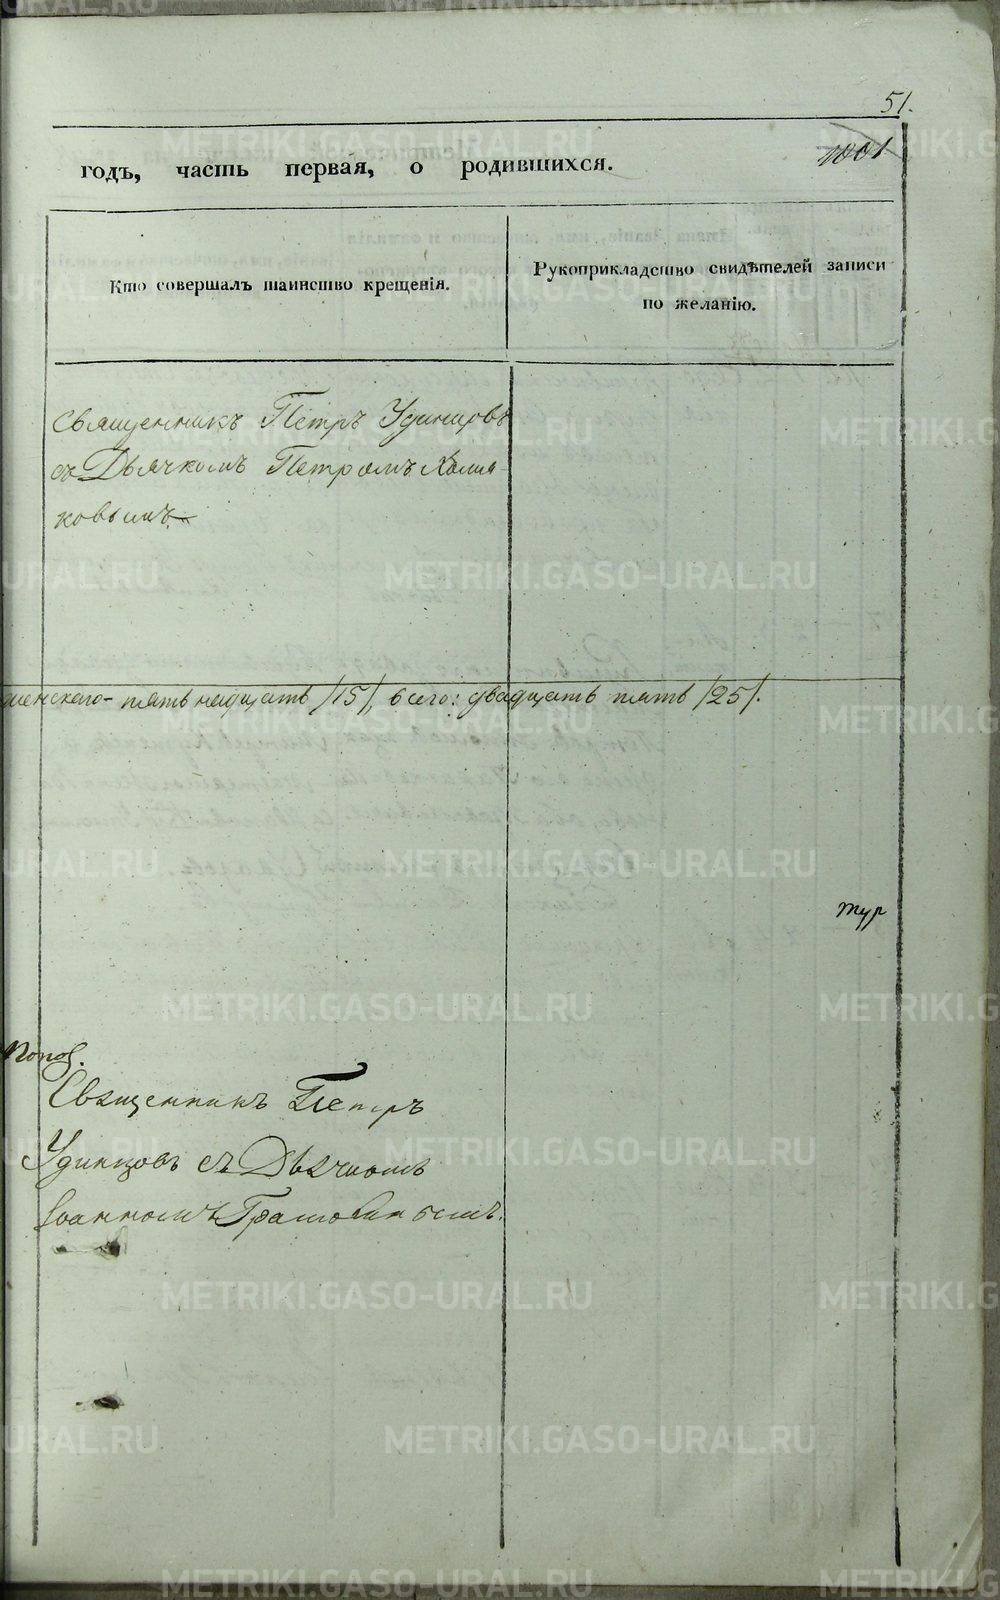 51.
1001
годъ, часть первая, о родившихся.
Кто совершалъ таинство крещенія.
Рукоприкладство свидѣтелей записи
по желанію.
Священникъ Петръ Удинцовъ
съ Дьячкомъ Петромъ
ковымъ
женскаго - пятьнадцать /15/, всего: двадцать пять /25/.
тур
попов.
Священникъ Петръ
Удинцовъ съ Дьячкомъ
Іоанномъ
METRIKI.GASO-URAL.RU